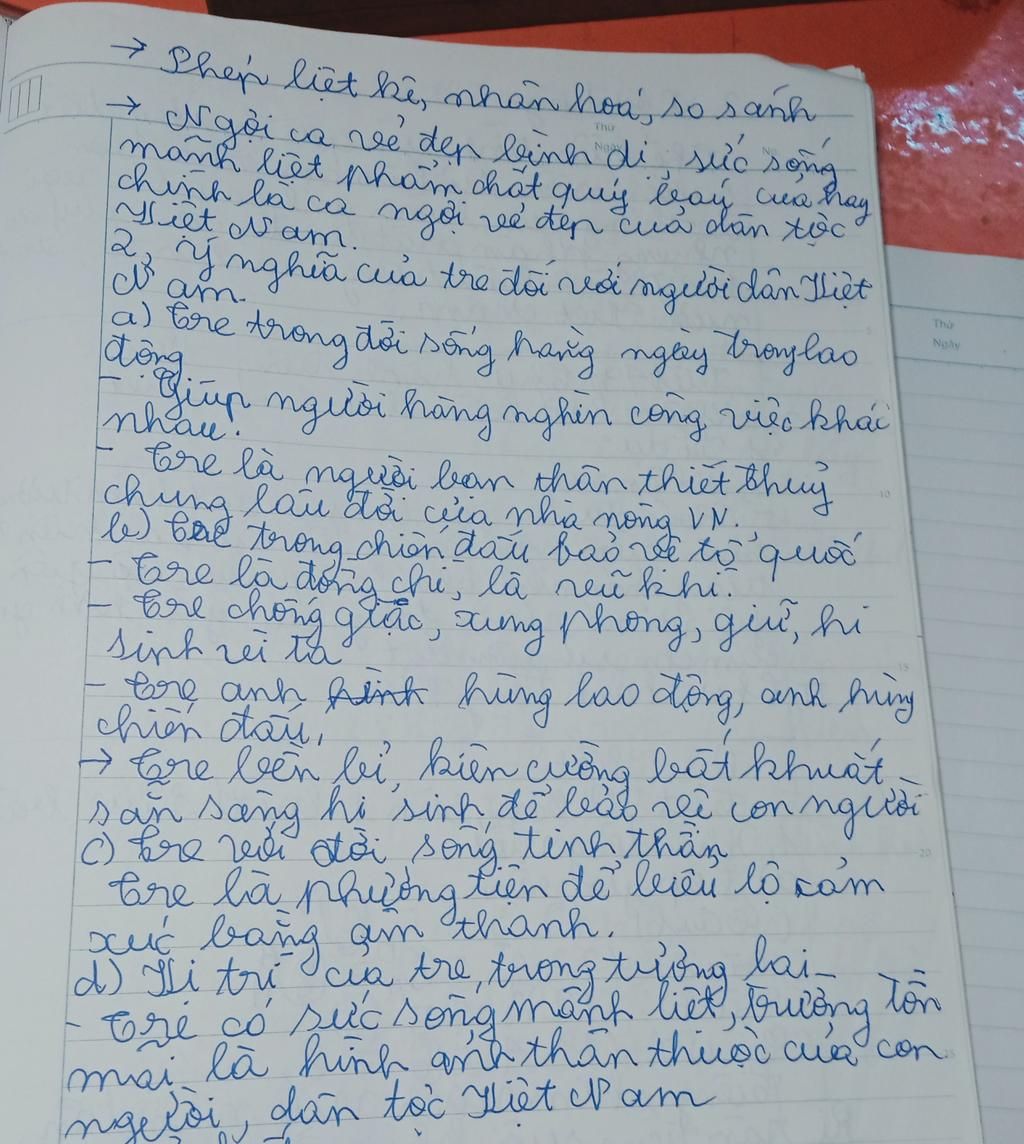 → Phép liệt kê, nhân hoá, so sánh
→ Ngợi ca vẻ đẹp bình dị, sức sống
mãnh liệt phẩm chất quý báu của hay
chính là ca ngợi vẻ đẹp của dân tộc
Việt Nam.
2, Ý nghĩa của tre đối với người dân Việt
Nam.
a) Tre trong đời sống hằng ngày trong lao
động
- Giúp người hàng nghìn công việc khác
nhau.
- Tre là người bạn thân thiết thuỷ
chung lâu đời của nhà nông VN.
b) Tre trong chiến đấu bảo vệ tổ quốc
- Tre là đồng chí, là vũ khí.
- Tre chống giặc, xung phong, giữ, hi
sinh vì ta
- Tre anh hùng lao động, anh hùng
chiến đấu,
→ Tre bền bỉ, kiên cường bất khuất
sẵn sàng hi sinh để bảo vệ con người
c) Tre với đời sống tinh thần
Tre là phương tiện để biểu lộ cảm
xúc bằng âm thanh.
d) Vị trí của tre trong tương lai
- Tre có sức sống mãnh liệt, trường tồn
mãi là hình ảnh thân thuộc của con
người, dân tộc Việt Nam
Thứ
Ngày
Thứ
Ngày
5
10
15
20